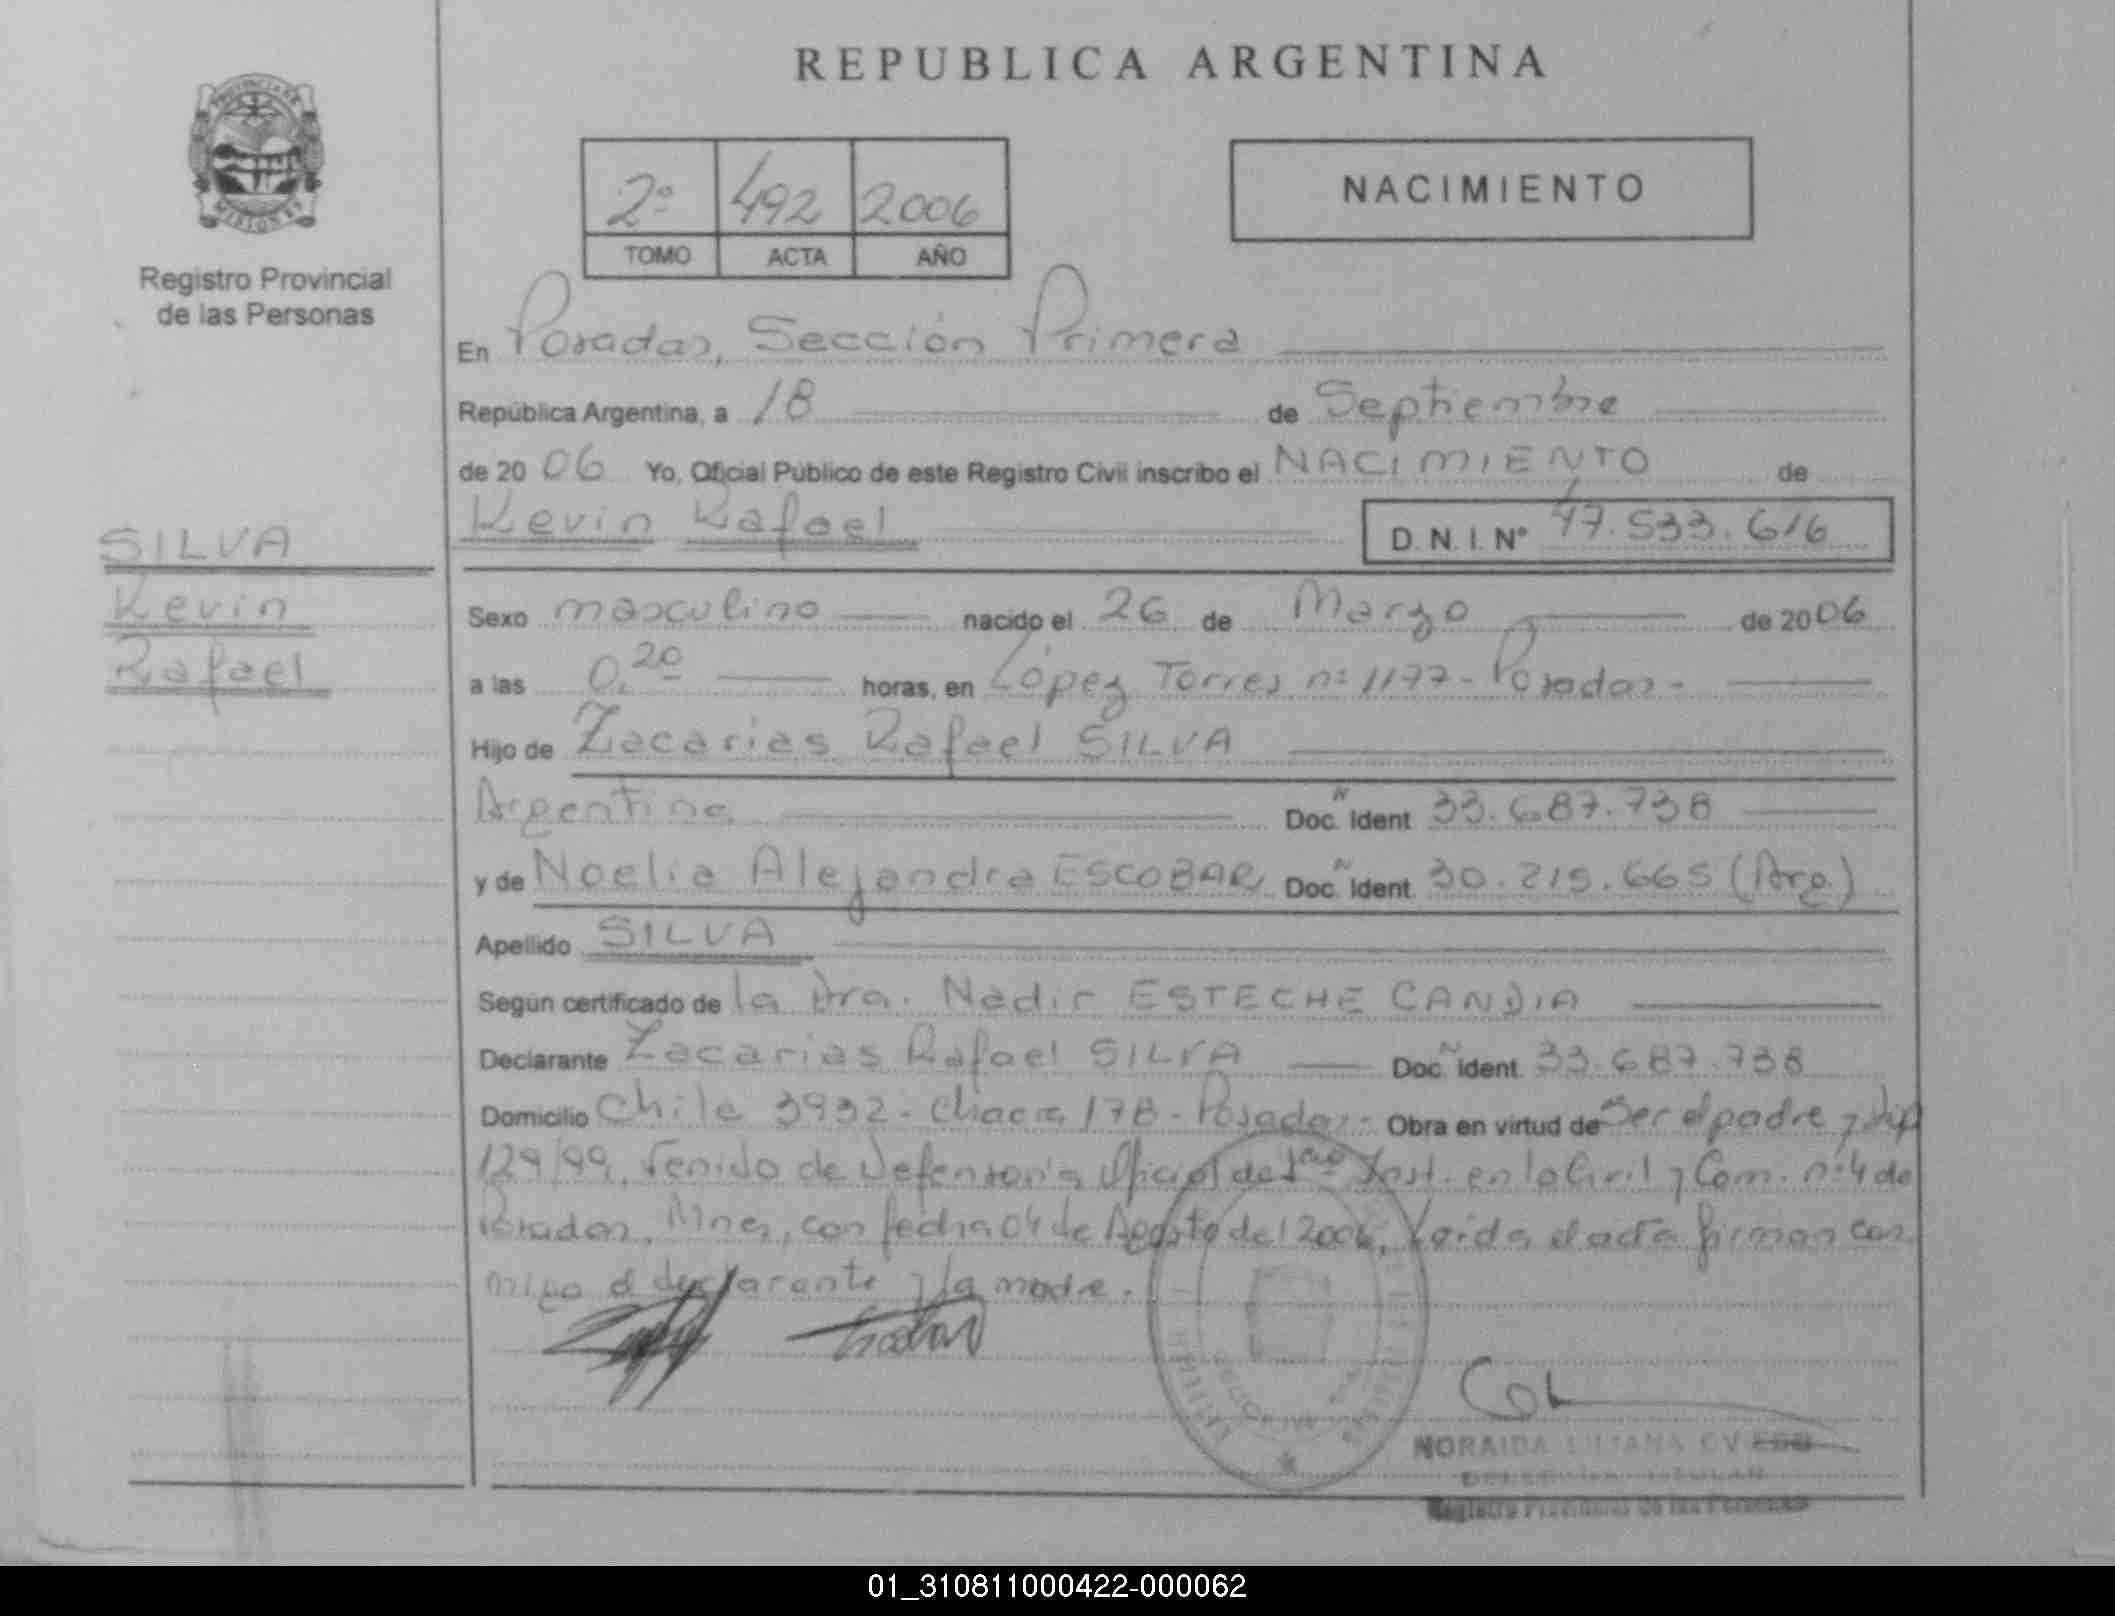 REPUBLICA ARGENTINA
PROVINCIA DE
MISIONES
Registro Provincial
de las Personas
2º 492 2006
TOMO ACTA AÑO
NACIMIENTO
En Posadas, Sección Primera
República Argentina, a 18 de Septiembre
de 20 06 Yo, Oficial Público de este Registro Civil inscribo el NACIMIENTO de
Kevin Rafael D. N. I. Nº 47.533.616
SILVA
Kevin
Rafael
Sexo masculino nacido el 26 de Marzo de 2006
a las 0.20 horas, en López Torres nº 1177 - Posadas -
Hijo de Zacarias Rafael SILVA
Argentina Doc. Ident. 33.687.738
y de Noelia Alejandra ESCOBAR Doc. Ident. 30.215.665 (Arg.)
Apellido SILVA
Según certificado de la Dra. Nadir ESTECHE CANDIA
Declarante Zacarias Rafael SILVA Doc. Ident. 33.687.738
Domicilio Chile 3932 - Chacra 178 - Posadas - Obra en virtud de Ser el padre y
129/99, Venido de Defensoría Oficial de 1era Inst. en lo Civil y Com. nº 4 de
Posadas, Mnes, con fecha 04 de Agosto del 2006, Leída el acta firman con
migo el declarante y la madre.
NORAIDA LILIANA OVIEDO
Registro Provincial de las Personas
01_310811000422-000062